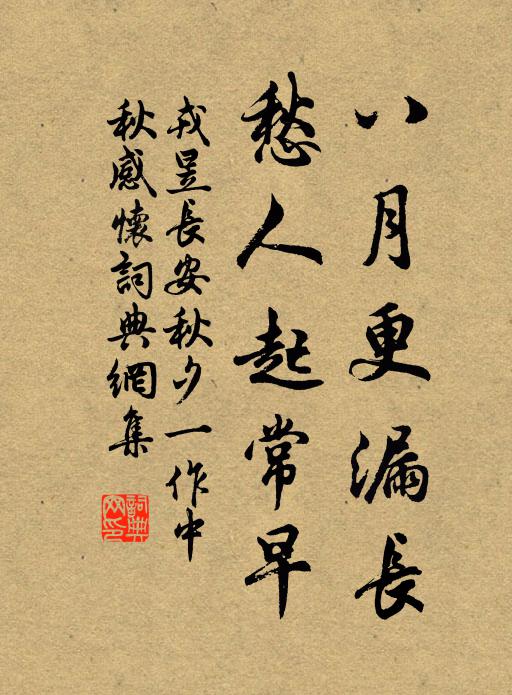 八月更漏長
愁人起常早
戎昱長安秋夕一作中
秋感懷詞典網集
詞典
網印